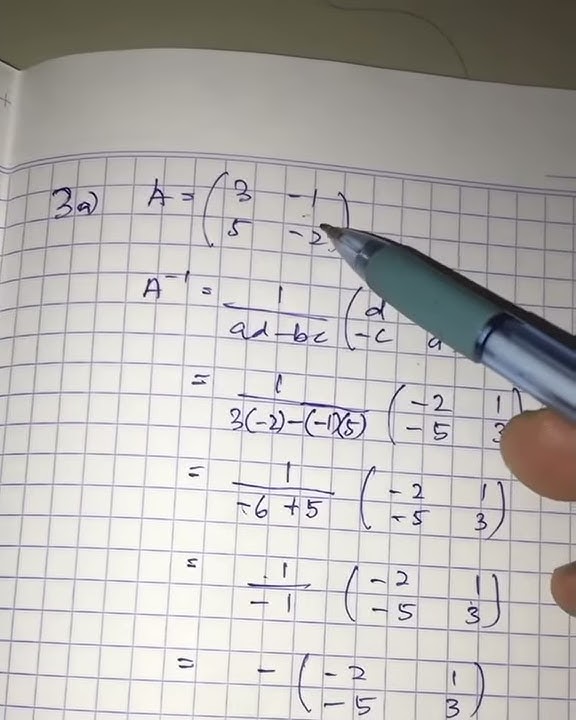 3a) A = ( 3 -1
5 -2 )
A⁻¹ = 1/(ad-bc) ( d
-c a
= 1/(3(-2)-(-1)(5)) ( -2 1
-5 3
= 1/(-6+5) ( -2 1
-5 3 )
= 1/-1 ( -2 1
-5 3 )
= - ( -2 1
-5 3 )